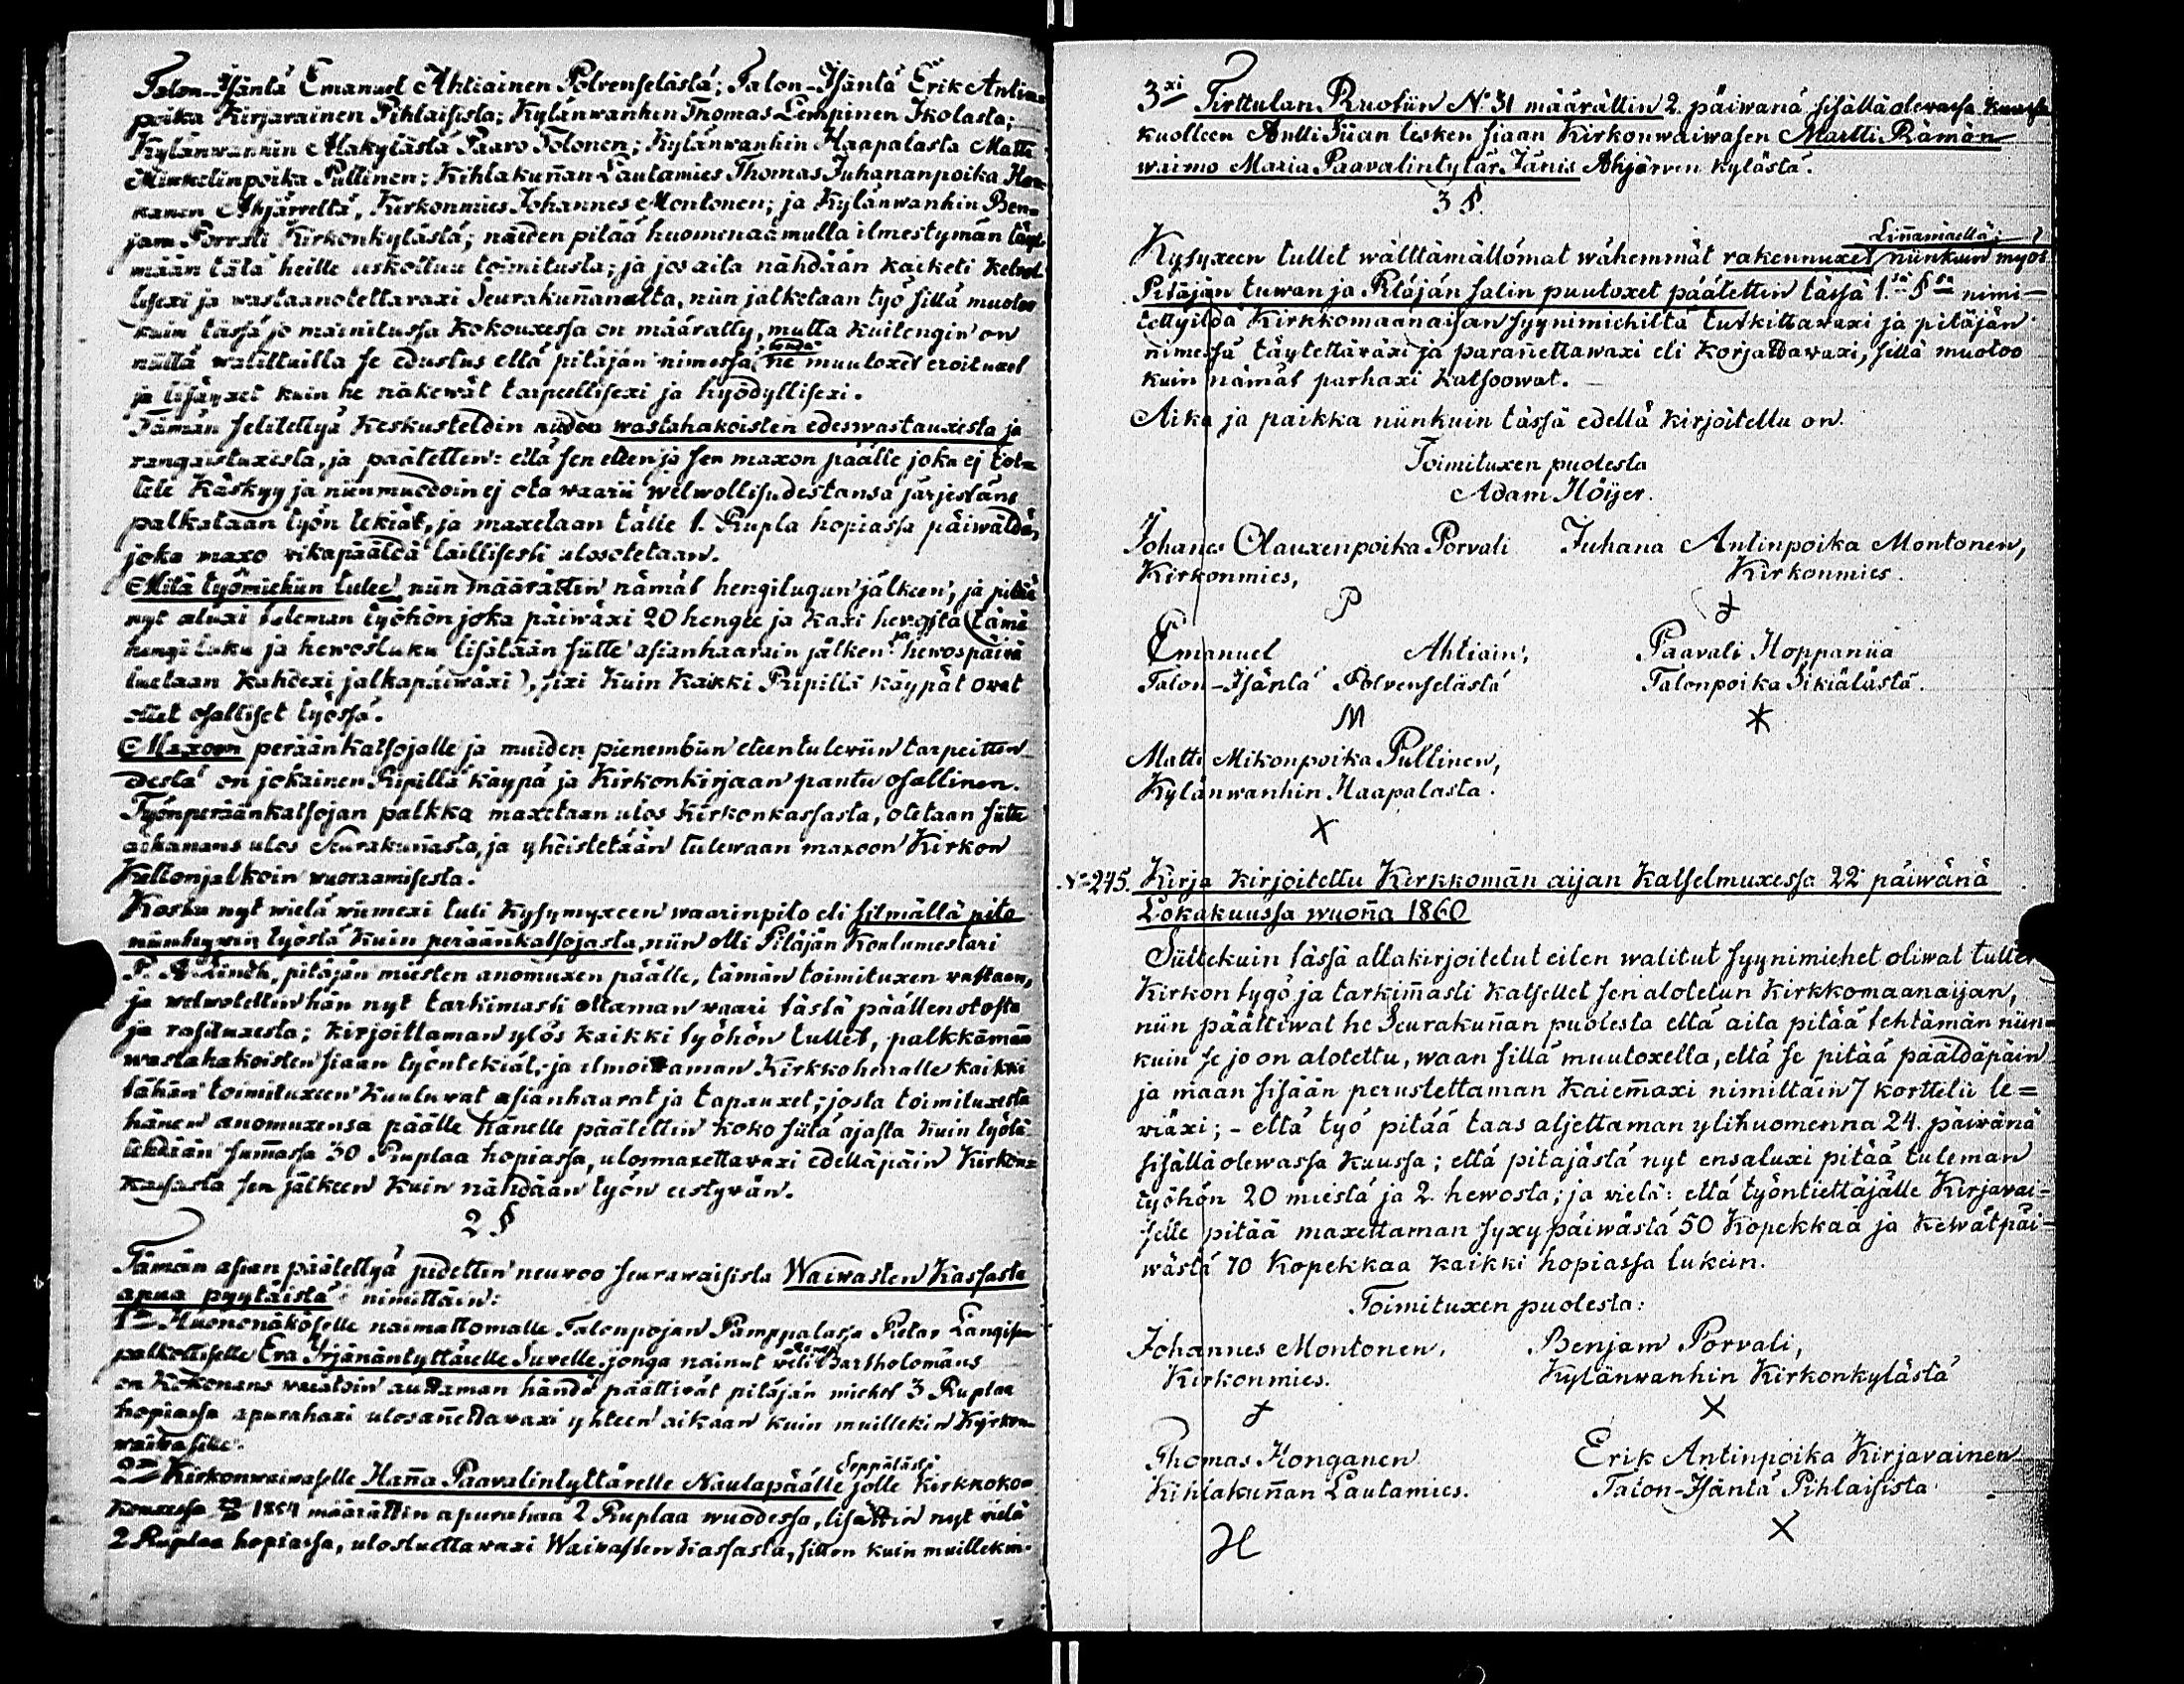 Talon-Isäntä Emanuel Ahtiainen Polvenselästä; Talon-Isäntä Erik Antin=
poika Kirjavainen Pihlaisista; Kylänwanhin Thomas Lempinen Ikolasta;
Kylänwanhin Alakylästä Paavo Tolonen; Kylänwanhin Haapalasta Matti
Mikkelinpoika Pullinen; Kihlakuñan Lautamies Thomas Juhananpoika Hon=
kanen Ahjärveltä, Kirkonmies Johannes Montonen; ja Kylänwanhin Ben=
jam Porvali Kirkonkylästä; näiden pitää huomenaamulla ilmestymän täyt
mään tätä heille uskottua toimitusta; ja jos aita nähdään kaiketi kelvol
lisexi ja wastaanotettavaxi Seurakuñanalta, niin jatketaan työ sillä muotoo
kuin tässä jo mainitussa kokouxessa on määrätty, mutta kuitengin on
näillä walituilla se edustus että pitäjän nimessä tehdä ne muutoxet eroituxet
ja lisäyxet kuin he näkewät tarpeellisexi ja hyödyllisexi.
Tämän selitettyä keskusteldin niiden wastahakoisten edeswastauxesta ja
rangaistuxista, ja päätettin: että sen eteen ja sen maxon päälle joka ej tot=
tele käskyy ja niinmuodoin ej ota waarii welwollisudestansa järjestäns
palkataan työn tekiät, ja maxetaan tälle 1. Rupla hopiassa päiwäldä,
joka maxo vikapääldä laillisesti ulosotetaan.
Mitä työmiehiin tulee, niin määrättin nämät hengilugun jälkeen, ja pitää
nyt aluxi tuleman työhön joka päiwäxi 20 hengee ja kaxi hevoista (tämä
hengi luku ja hewosluku lisätään siitte asianhaarain jälken ja hewospäivä
luetaan kahdexi jalkapäiwäxi), sixi kuin kaikki Ripillä käypät ovat
ollet osalliset työssä.
Maxoon peräänkatsojalle ja muiden pienembiin eteentuleviin tarpeitten
destä on jokainen Ripillä käypä ja Kirkonkirjaan pantu osallinen.
Työnperäänkatsojan palkka maxetaan ulos Kirkonkassasta, otetaan siitte
aikanans ulos Seurakuñasta, ja yhdistetään tulewaan maxoon Kirkon
Kellonjalkoin wuoraamisesta.
Koska nyt wielä wiimexi tuli kysymyxeen waarinpito eli silmällä pito
niinhywin työstä kuin peräänkatsojasta, niin otti Pitäjän Koulumestari
P. A. Lindh, pitäjän miesten anomuxen päälle, tämän toimituxen vastaan,
ja welwotettin hän nyt tarkimasti ottaman waari tästä päällenotosta
ja rasituxesta; kirjoittaman ylös kaikki työhön tullet, palkkämän
wastahakoisten siaan työntekiät; ja ilmoittaman Kirkkoherralle kaikki
tähän toimituxeen kuuluvat asianhaarat ja tapauxet; josta toimituxesta
hänen anomuxensa päälle hänelle päätettin koko siitä ajasta kuin työtä
tehdään summassa 30 Ruplaa hopiassa, ulosmaxettavaxi edelläpäin Kirkon=
kassasta sen jälkeen kuin nähdään työn eistyvän.
2 §
Tämän asian päätettyä pidettin neuvoo seurawaisista Waiwasten Kassasta
apua pyytäistä nimittäin:
1xi Huononäköselle naimattomalle Talonpojan Pamppalassa Pietar Langisen
palkolliselle Eva Yrjänäntyttärelle Suvelle, jonga nainut veli Bartholomäus
on kokonans waratoin auttaman händä päättivät pitäjän miehet 3 Ruplaa
hopiassa apurahaxi ulosañettavaxi yhteen aikaan kuin muillekin Kirkon
waiwasille.
2xi Kirkonwaiwaselle Hañna Paavalintyttärelle Naulapäälle Seppälässä jolle Kirkkoko=
kouxessa 1854 määrättin apurahaa 2 Ruplaa wuodessa, lisättin nyt vielä
2 Ruplaa hopiassa, ulosluettavaxi Waiwasten kassasta, sitten kuin muillekin.
3xi Tirttulan Ruotiin No 31 määrättin 2. päiwänä sisällä olevassa kuussa
kuolleen Antti Siian lesken siaan Kirkonwaiwasen Martti Rämän
waimo Maria Paavalintytär Jänis Ahjärven kylästä.
3 §.
Kysyxeen tullet wälttämättömat wähemmät rakennuxet Liñamäellä; niinkuin myös
Pitäjän tuwan ja Pitäjän salin puutoxet päätettin tässä 1.sä §sä nimi-
tettyildä Kirkkomaanaisan syynimiehiltä tutkittavaxi ja pitäjän
nimessä täytettäväxi ja parañettawaxi eli korjattavaxi, sillä muotoo
kuin nämät parhaxi katsoowat. -
Aika ja paikka niinkuin tässä edellä kirjoitettu on.
Toimituxen puolesta
Adam Höijer.
Johanes Olauxenpoika Porvali Juhana Antinpoika Montonen,
Kirkonmies, Kirkonmies.
P +
Emanuel Ahtiain, Paavali Hoppania
Talon-Isäntä Polvenselästä Talonpoika Sikiälästä.
M *
Matti Mikonpoika Pullinen,
Kylänwanhin Haapalasta.
X
No 245. Kirja kirjoitettu Kirkkomän aijan katselmuxessa 22 päiwänä
Lokakuussa wuoña 1860
Siittekuin tässä allakirjoitetut eilen walitut syynimiehet oliwat tullet
Kirkon tygö ja tarkim̃asti katsellet sen alotetun Kirkkomaanaijan,
niin päättiwat he Seurakuñan puolesta että aita pitää tehtämän niin=
kuin se jo on alotettu, waan sillä muutoxella, että se pitää pääldäpäin
ja maan sisään perustettaman kaiem̃axi nimittäin 7 korttelii le=
viäxi; - että työ pitää taas aljettaman ylihuomenna 24. päivänä
sisällä olewassa kuussa; että pitäjästä nyt ensaluxi pitää tuleman
työhön 20 miestä ja 2 hewosta; ja vielä: että työntiettäjälle Kirjavai=
selle pitää maxettaman syxypäiwästä 50 Kopekkaa ja kewätpäi-
wästä 70 Kopekkaa kaikki hopiassa lukein.
Toimituxen puolesta:
Johannes Montonen, Benjam Porvali,
Kirkonmies. Kylänvanhin Kirkonkylästä
+ X
Thomas Honganen Erik Antinpoika Kirjavainen
Kihlakuñan Lautamies. Talon-Isäntä Pihlaisista.
H X